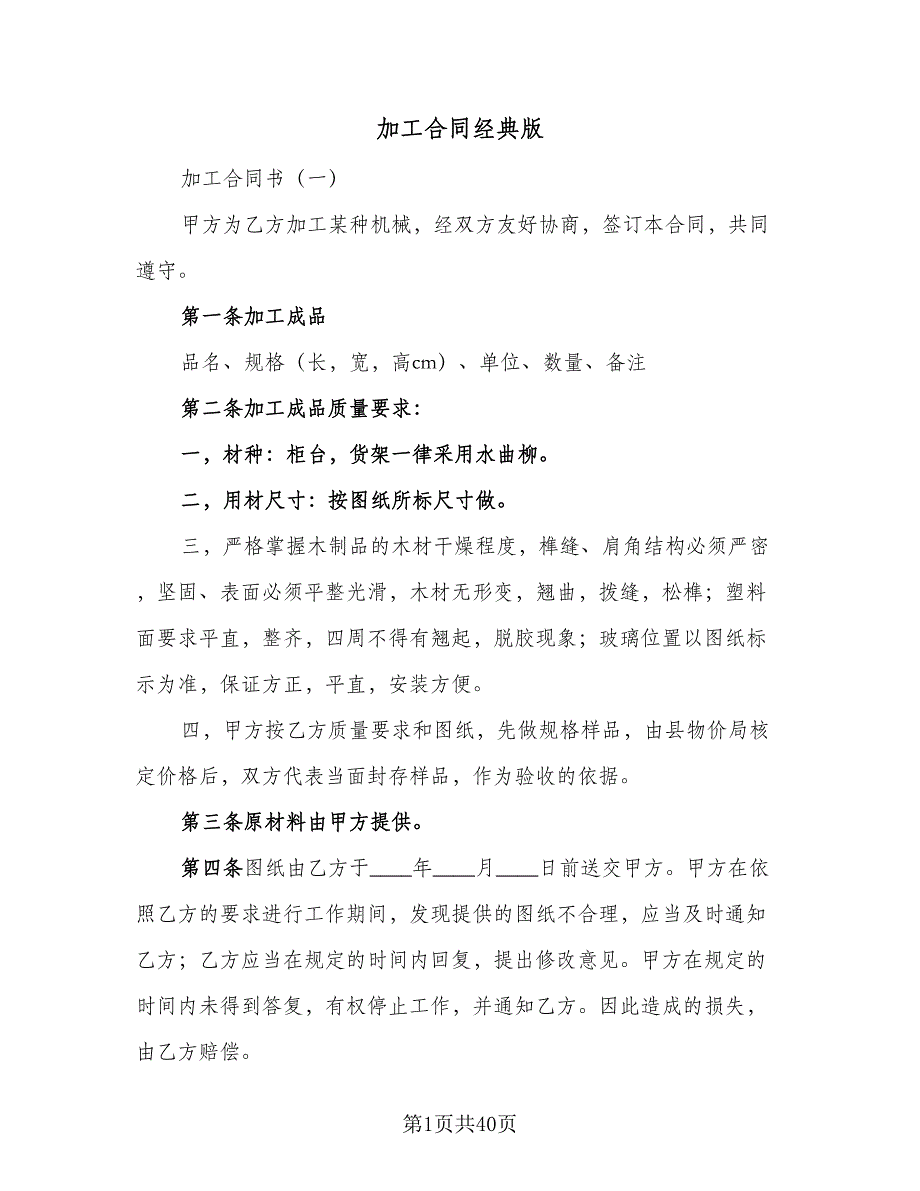 加工合同经典版
加工合同书（一）
甲方为乙方加工某种机械，经双方友好协商，签订本合同，共同
遵守。
第一条加工成品
品名、规格（长，宽，高cm）、单位、数量、备注
第二条加工成品质量要求：
一，材种：柜台，货架一律采用水曲柳。
二，用材尺寸：按图纸所标尺寸做。
三，严格掌握木制品的木材干燥程度，榫缝、肩角结构必须严密
，坚固、表面必须平整光滑，木材无形变，翘曲，拨缝，松榫；塑料
面要求平直，整齐，四周不得有翘起，脱胶现象；玻璃位置以图纸标
示为准，保证方正，平直，安装方便。
四，甲方按乙方质量要求和图纸，先做规格样品，由县物价局核
定价格后，双方代表当面封存样品，作为验收的依据。
第三条原材料由甲方提供。
第四条图纸由乙方于____年____月____日前送交甲方。甲方在依
照乙方的要求进行工作期间，发现提供的图纸不合理，应当及时通知
乙方；乙方应当在规定的时间内回复，提出修改意见。甲方在规定的
时间内未得到答复，有权停止工作，并通知乙方。因此造成的损失，
由乙方赔偿。
第1页共40页